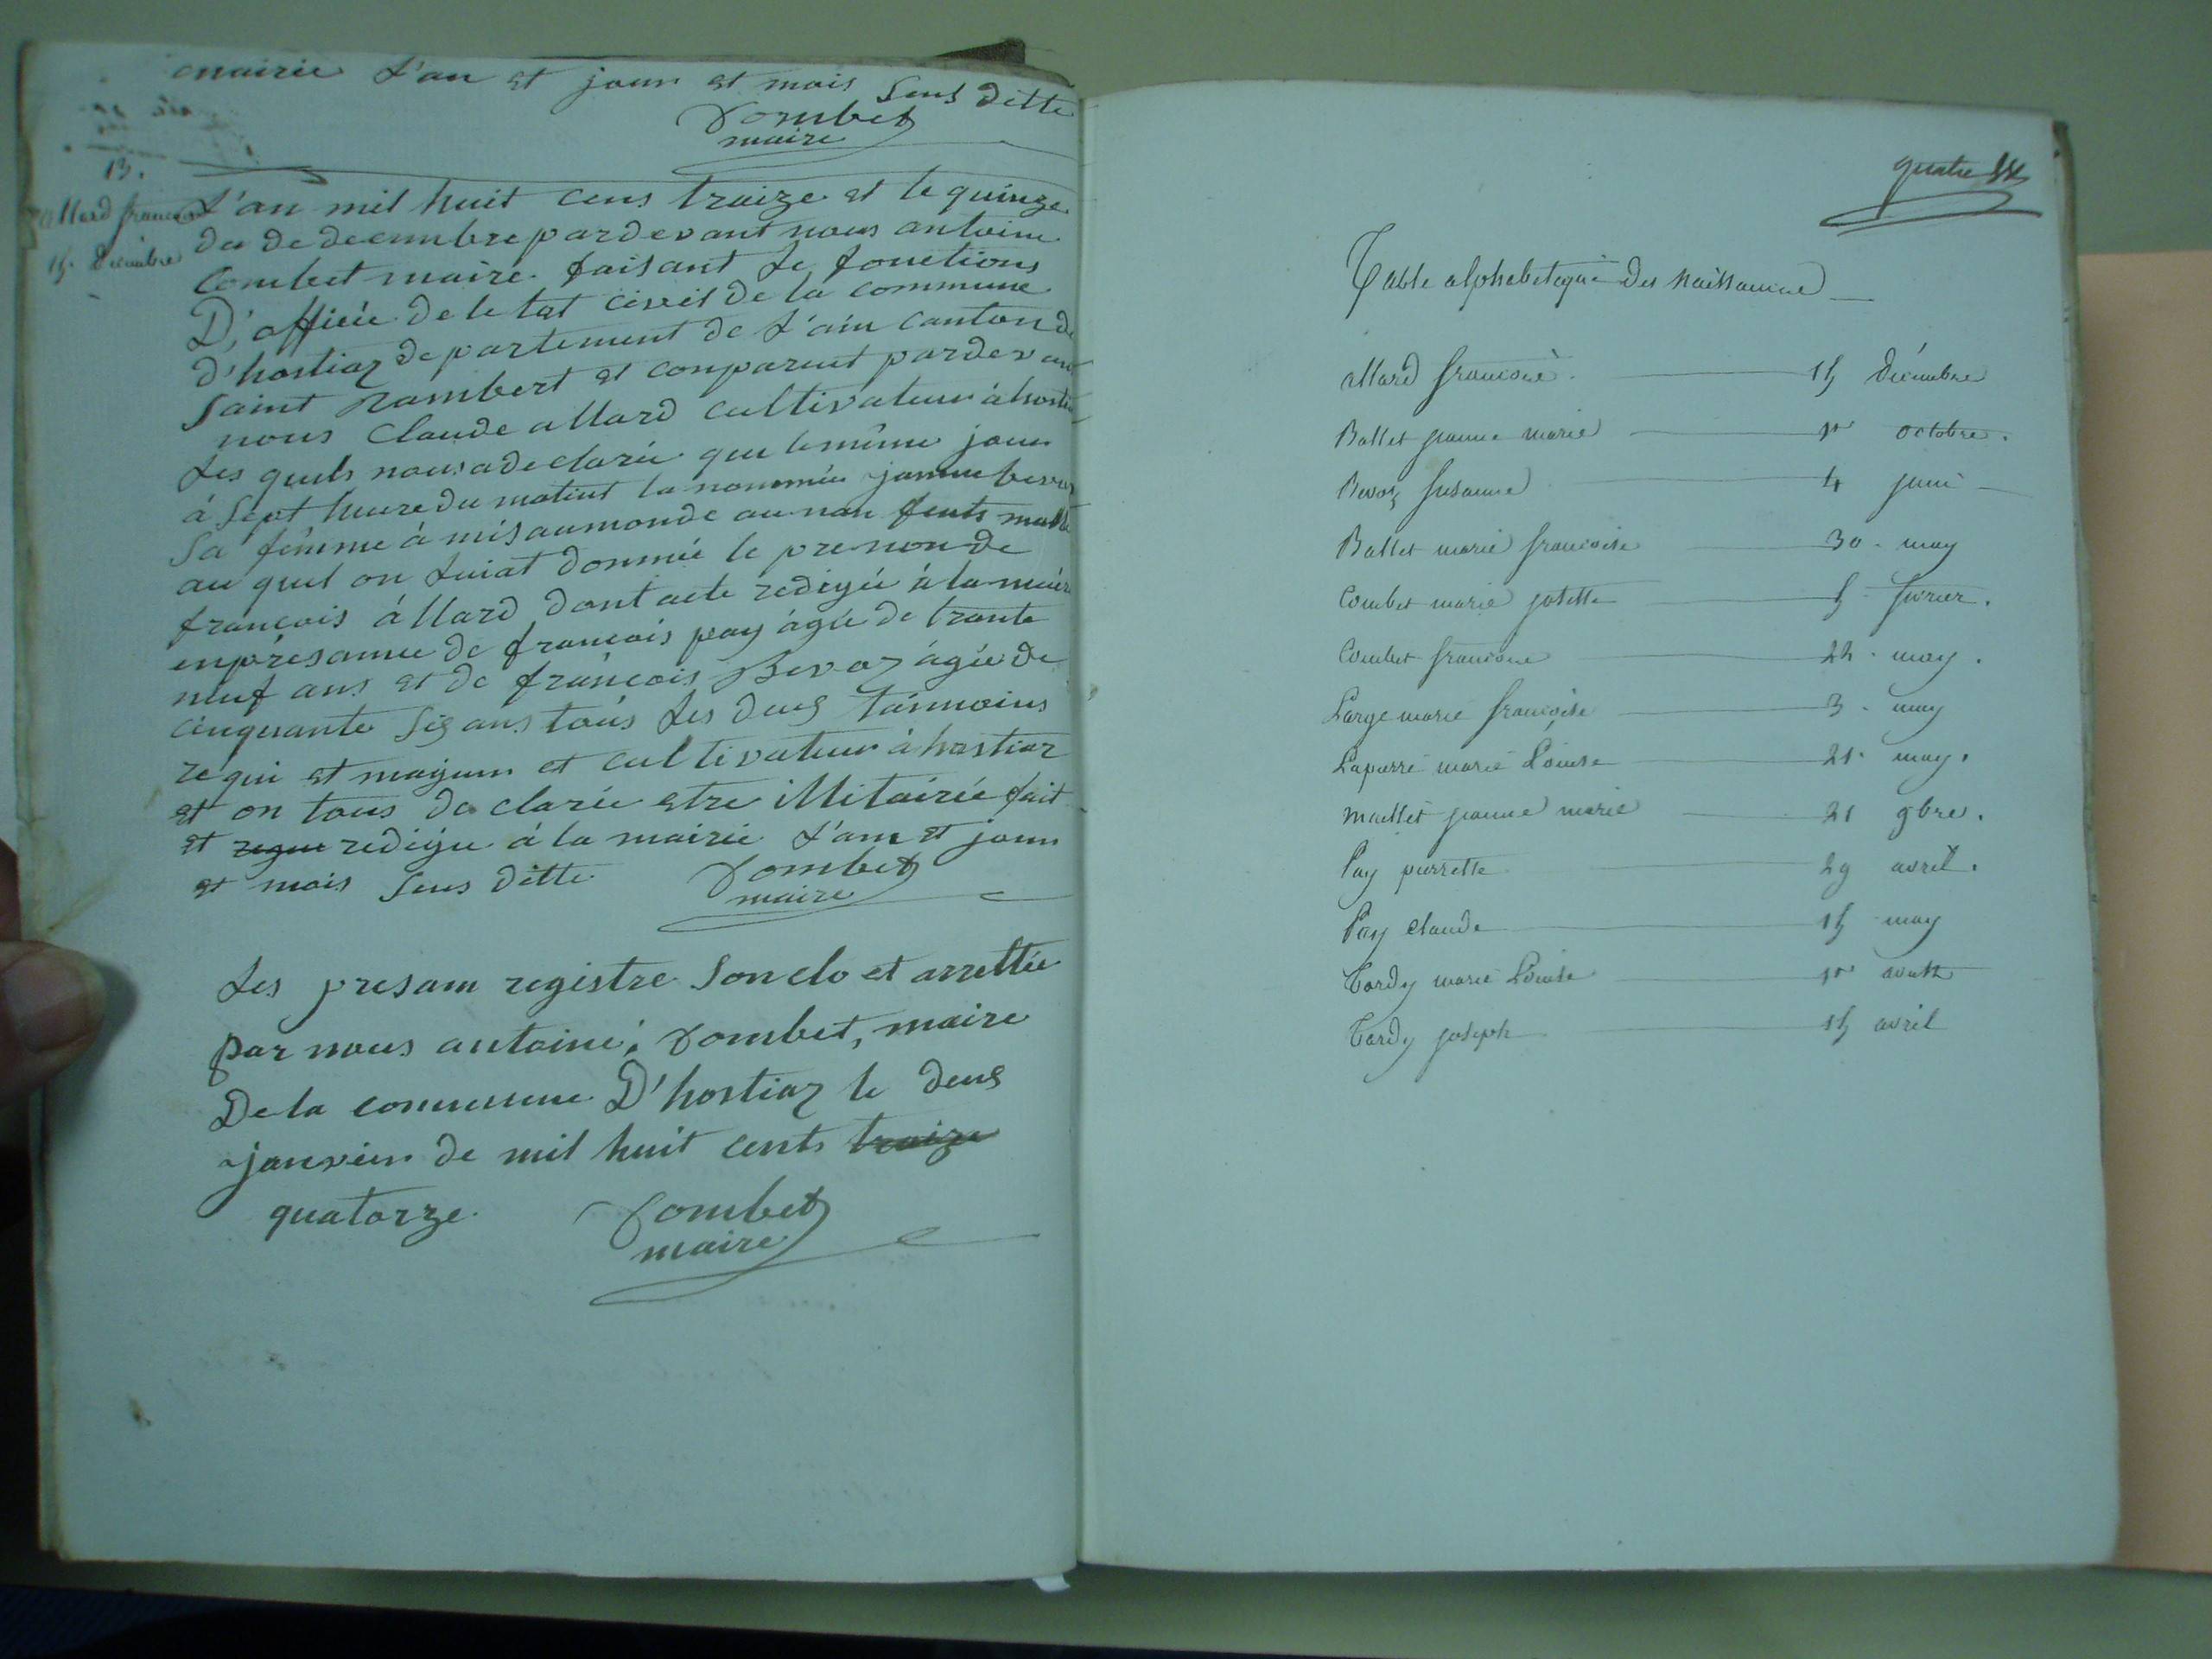 mairie L'an et jour et mois Sus ditte
Combet
maire
13.
allard francois
15 decembre
L'an mil huit cens traize et le quinze
du de decembre pardevant nous antoine
Combet maire faisant Le fonctions
D'officie de le tat civil de la commune
d'hostiaz departement de L'ain canton de
Saint Rambert et conparent pardevant
nous Claude allard cultivateur à hostiaz
Les quels nous a declarée que le même jour
à Sept heure du matint la nommée janne bevoz
Sa femme à mis au monde au nan fents malle
au quel on Luiat donnée le prenon de
francois àllard dont acte redigée à la mairie
enpresanne de francois pay àgée de trante
neuf ans et de francois Bevoz àgée de
cinquante Sis ans tous Les deus tainmoins
requi et majeur et cultivateur à hostiaz
et on tous de clarée estre illitairée fait
et requi redigée à la mairie L'an et jour
et mois Sus ditte
Combet
maire
Les presam registre Son clo et arrettée
par nous antoine, Combet, maire
De la commune D'hostiaz le deus
janvier de mil huit cents traize
quatorze.
Combet
maire
quatre
Table alphabetique Des Naissance
allard francois 15 décembre
Ballet jeanne marie 1er octobre.
Bevoz susanne 4 juin
Ballet marie francoise 30 may
Combet marie josette 5 fevrier.
Combet francoise 22 may.
Large marie francoise 3 may
Lapierre marie Louise 21 may.
Maillet jeanne marie 21 9bre.
Pay pierrette 29 avril.
Pay claude 15 may
Tardy marie Louise 1er aoust
Tardy joseph 15 avril